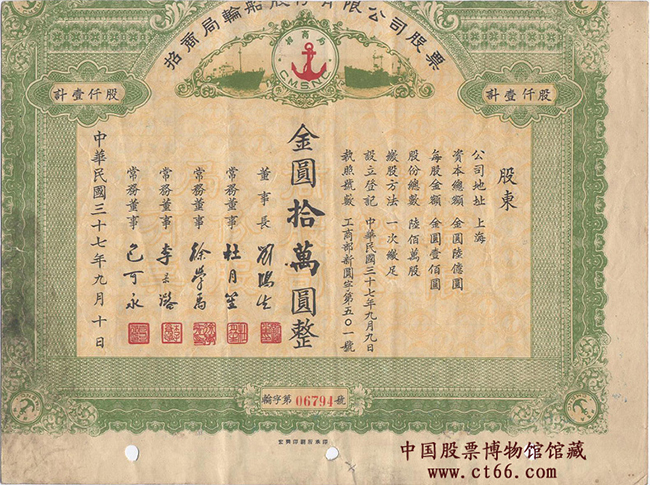 招商局輪船股份有限公司股票
招商局
CMSNC
計壹仟股
計壹仟股
股東
公司地址 上海
資本總額 金圓陸億圓
每股金額 金圓壹佰圓
股份總數 陸佰萬股
繳股方法 一次繳足
設立登記 中華民國三十七年九月九日
執照號數 工商部新圓字第五〇一號
金圓拾萬圓整
董事長
常務董事 杜月笙
常務董事 徐學禹
常務董事
常務董事
中華民國三十七年九月十日
輪字第 06794 號
中国股票博物馆馆藏
www.ct66.com